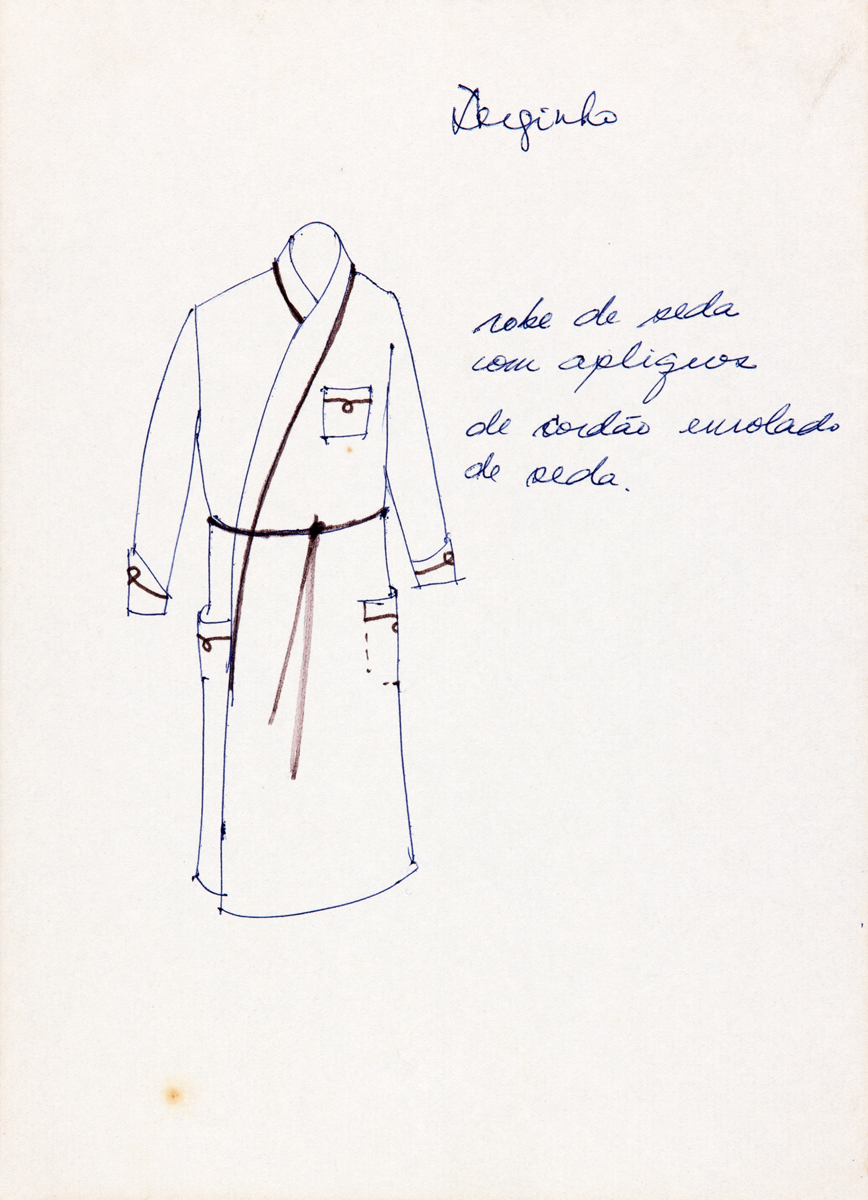 robe de seda
com apliques
de cordão enrolado
de seda.